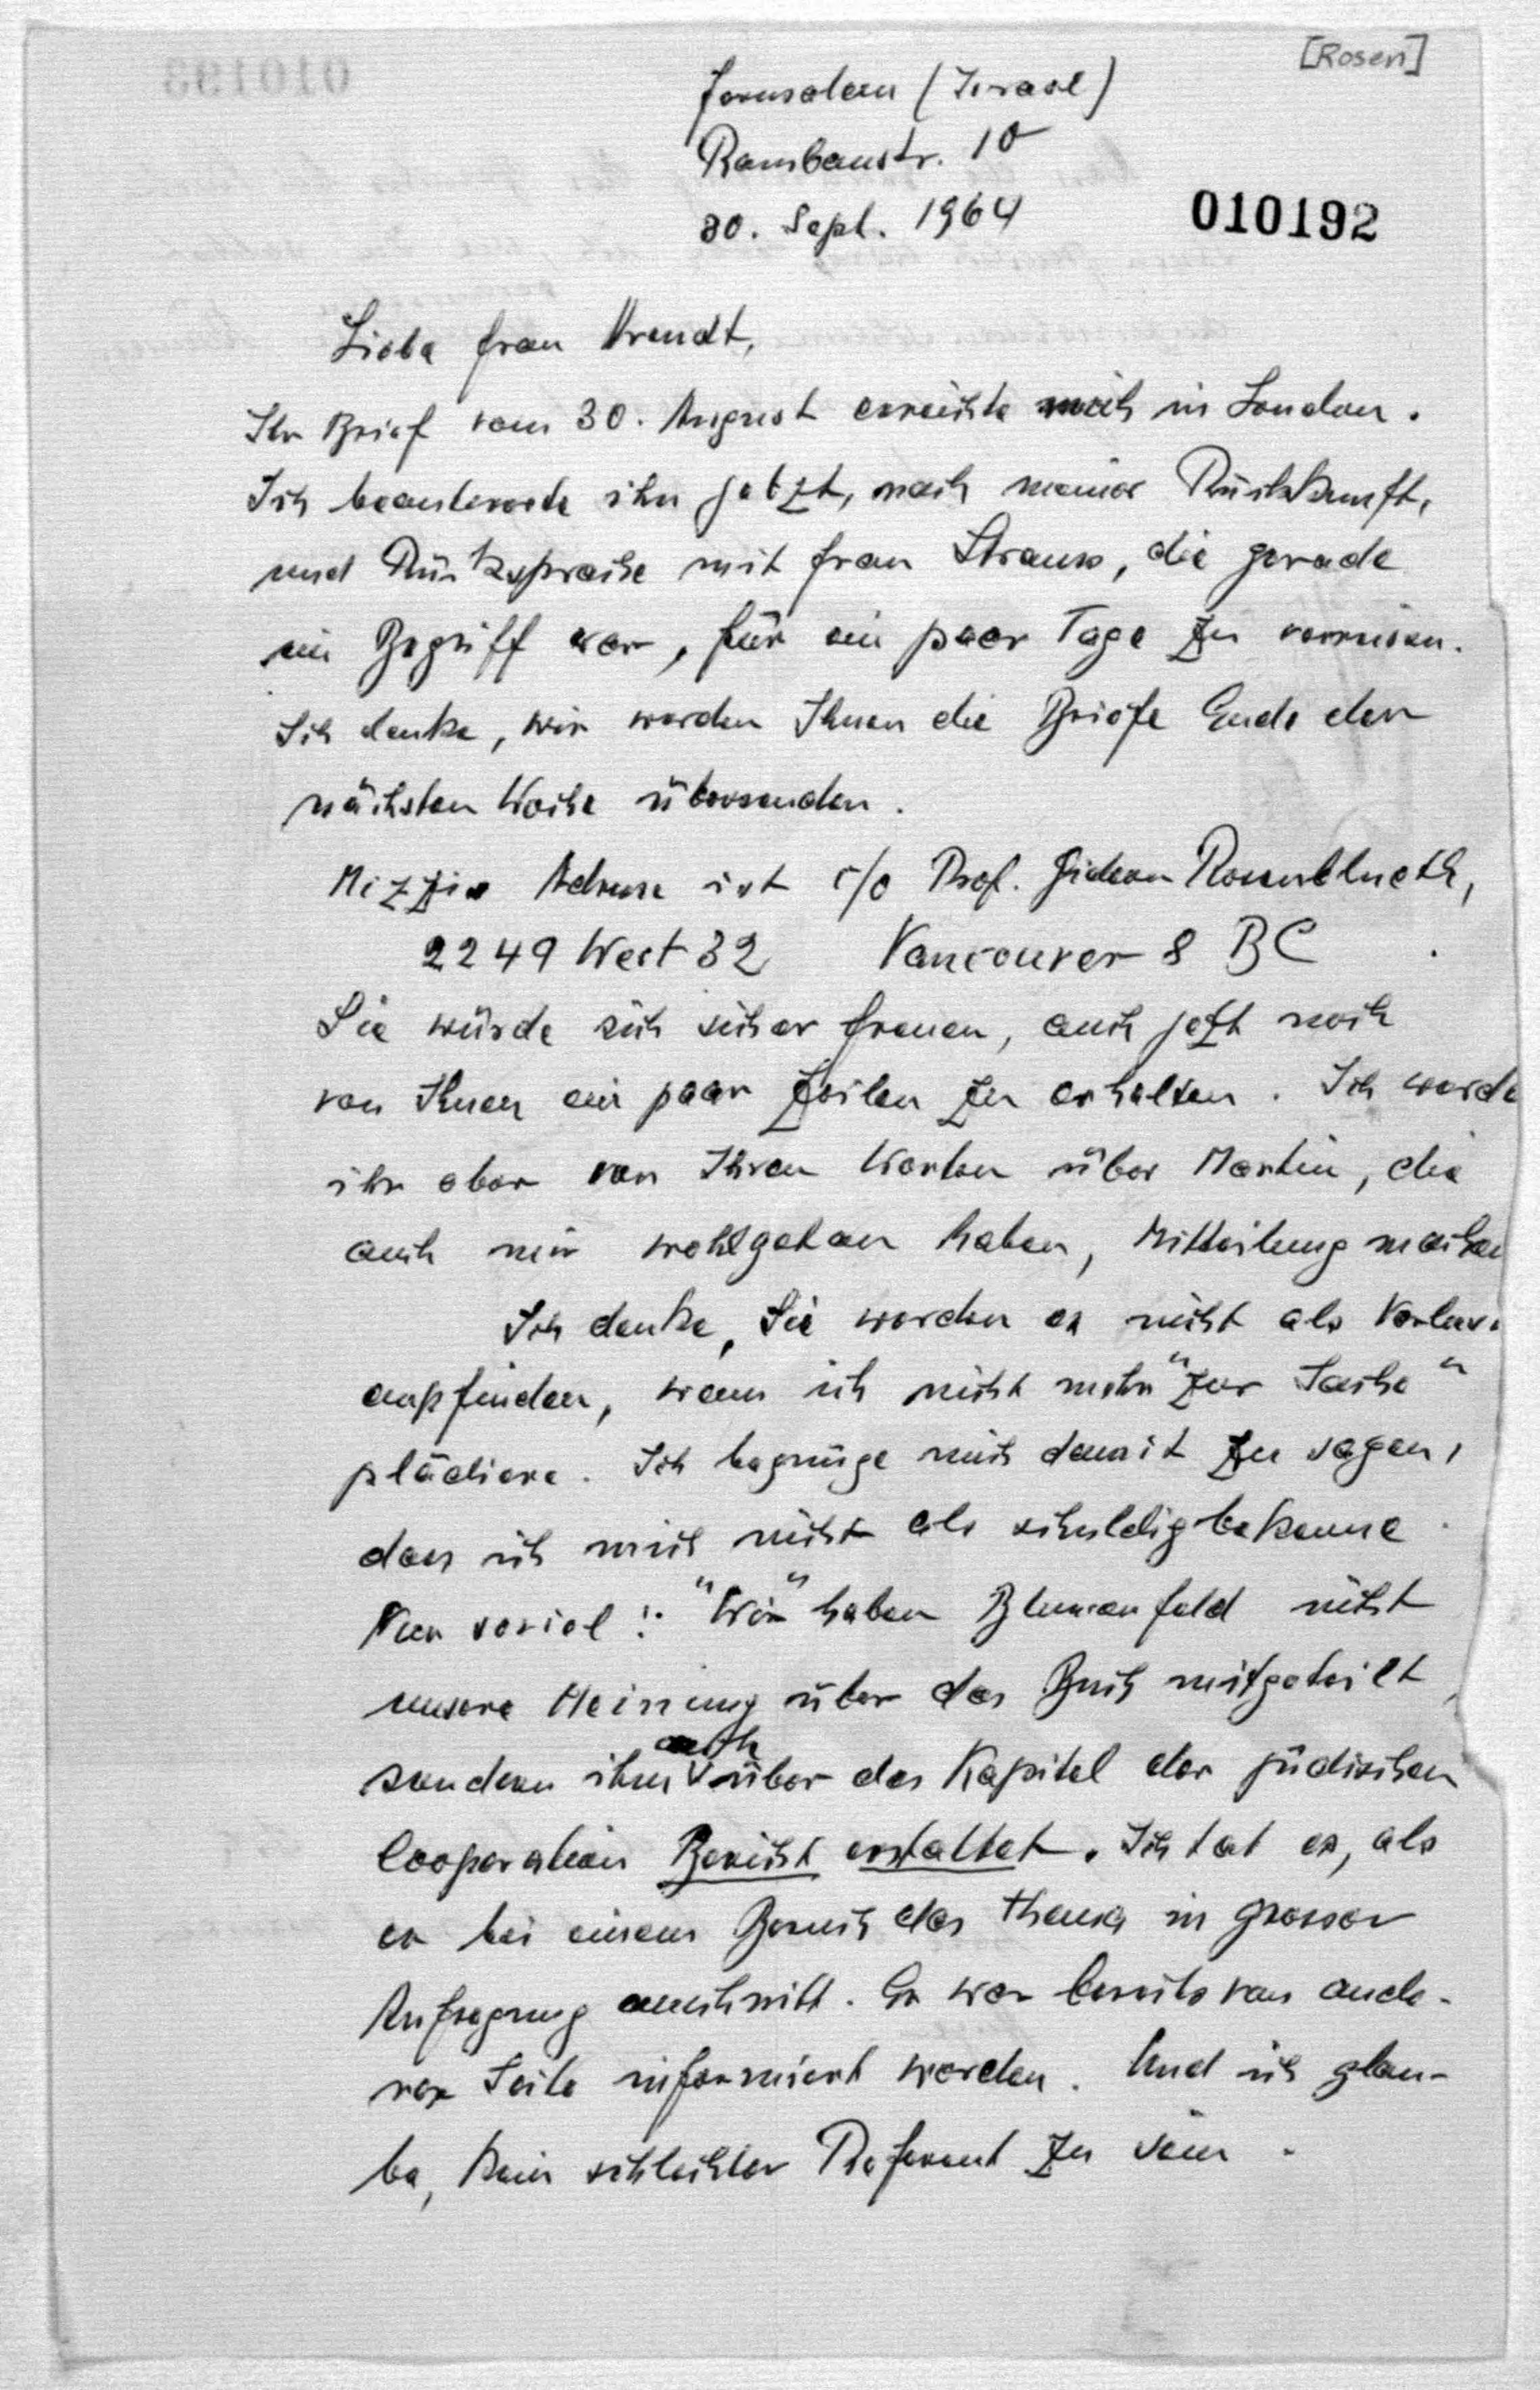 [Rosen]
Jerusalem (Israel)
Rambanstr. 10
30. Sept. 1964
010192
Liebe Frau Arendt,
Ihr Brief vom 30. August erreichte mich in London.
Ich beantworte ihn jetzt, nach meiner Rückkunft,
und Rücksprache mit Frau Strauss, die gerade
im Begriff war, für ein paar Tage zu verreisen.
Ich denke, wir werden Ihnen die Briefe Ende der
nächsten Woche übersenden.
Mizzis Adresse ist c/o Prof. Gideon Rosenbluth,
2249 West 32 Vancouver 8 BC
Sie würde sich sicher freuen, auch jetzt noch
von Ihnen ein paar Zeilen zu erhalten. Ich werde
ihr aber von Ihren Worten über Martin, die
auch mir wohlgetan haben, Mitteilung machen
Ich denke, Sie werden es nicht als
empfinden, wenn ich nicht mehr "zur Sache"
plädiere. Ich begnüge mich damit zu sagen,
dass ich mich nicht als schuldig bekenne.
Nur soviel: "Wir" haben Blumenfeld nicht
unsere Meinung über das Buch mitgeteilt,
sondern ihm auch über das Kapitel der jüdischen
Cooperation Bericht erstattet. Ich tat es, als
er bei einem Besuch das Thema in grosser
Aufregung anschnitt. Er war bereits von ande-
rer Seite informiert worden. Und ich glau-
be, kein schlechter Referent zu sein.